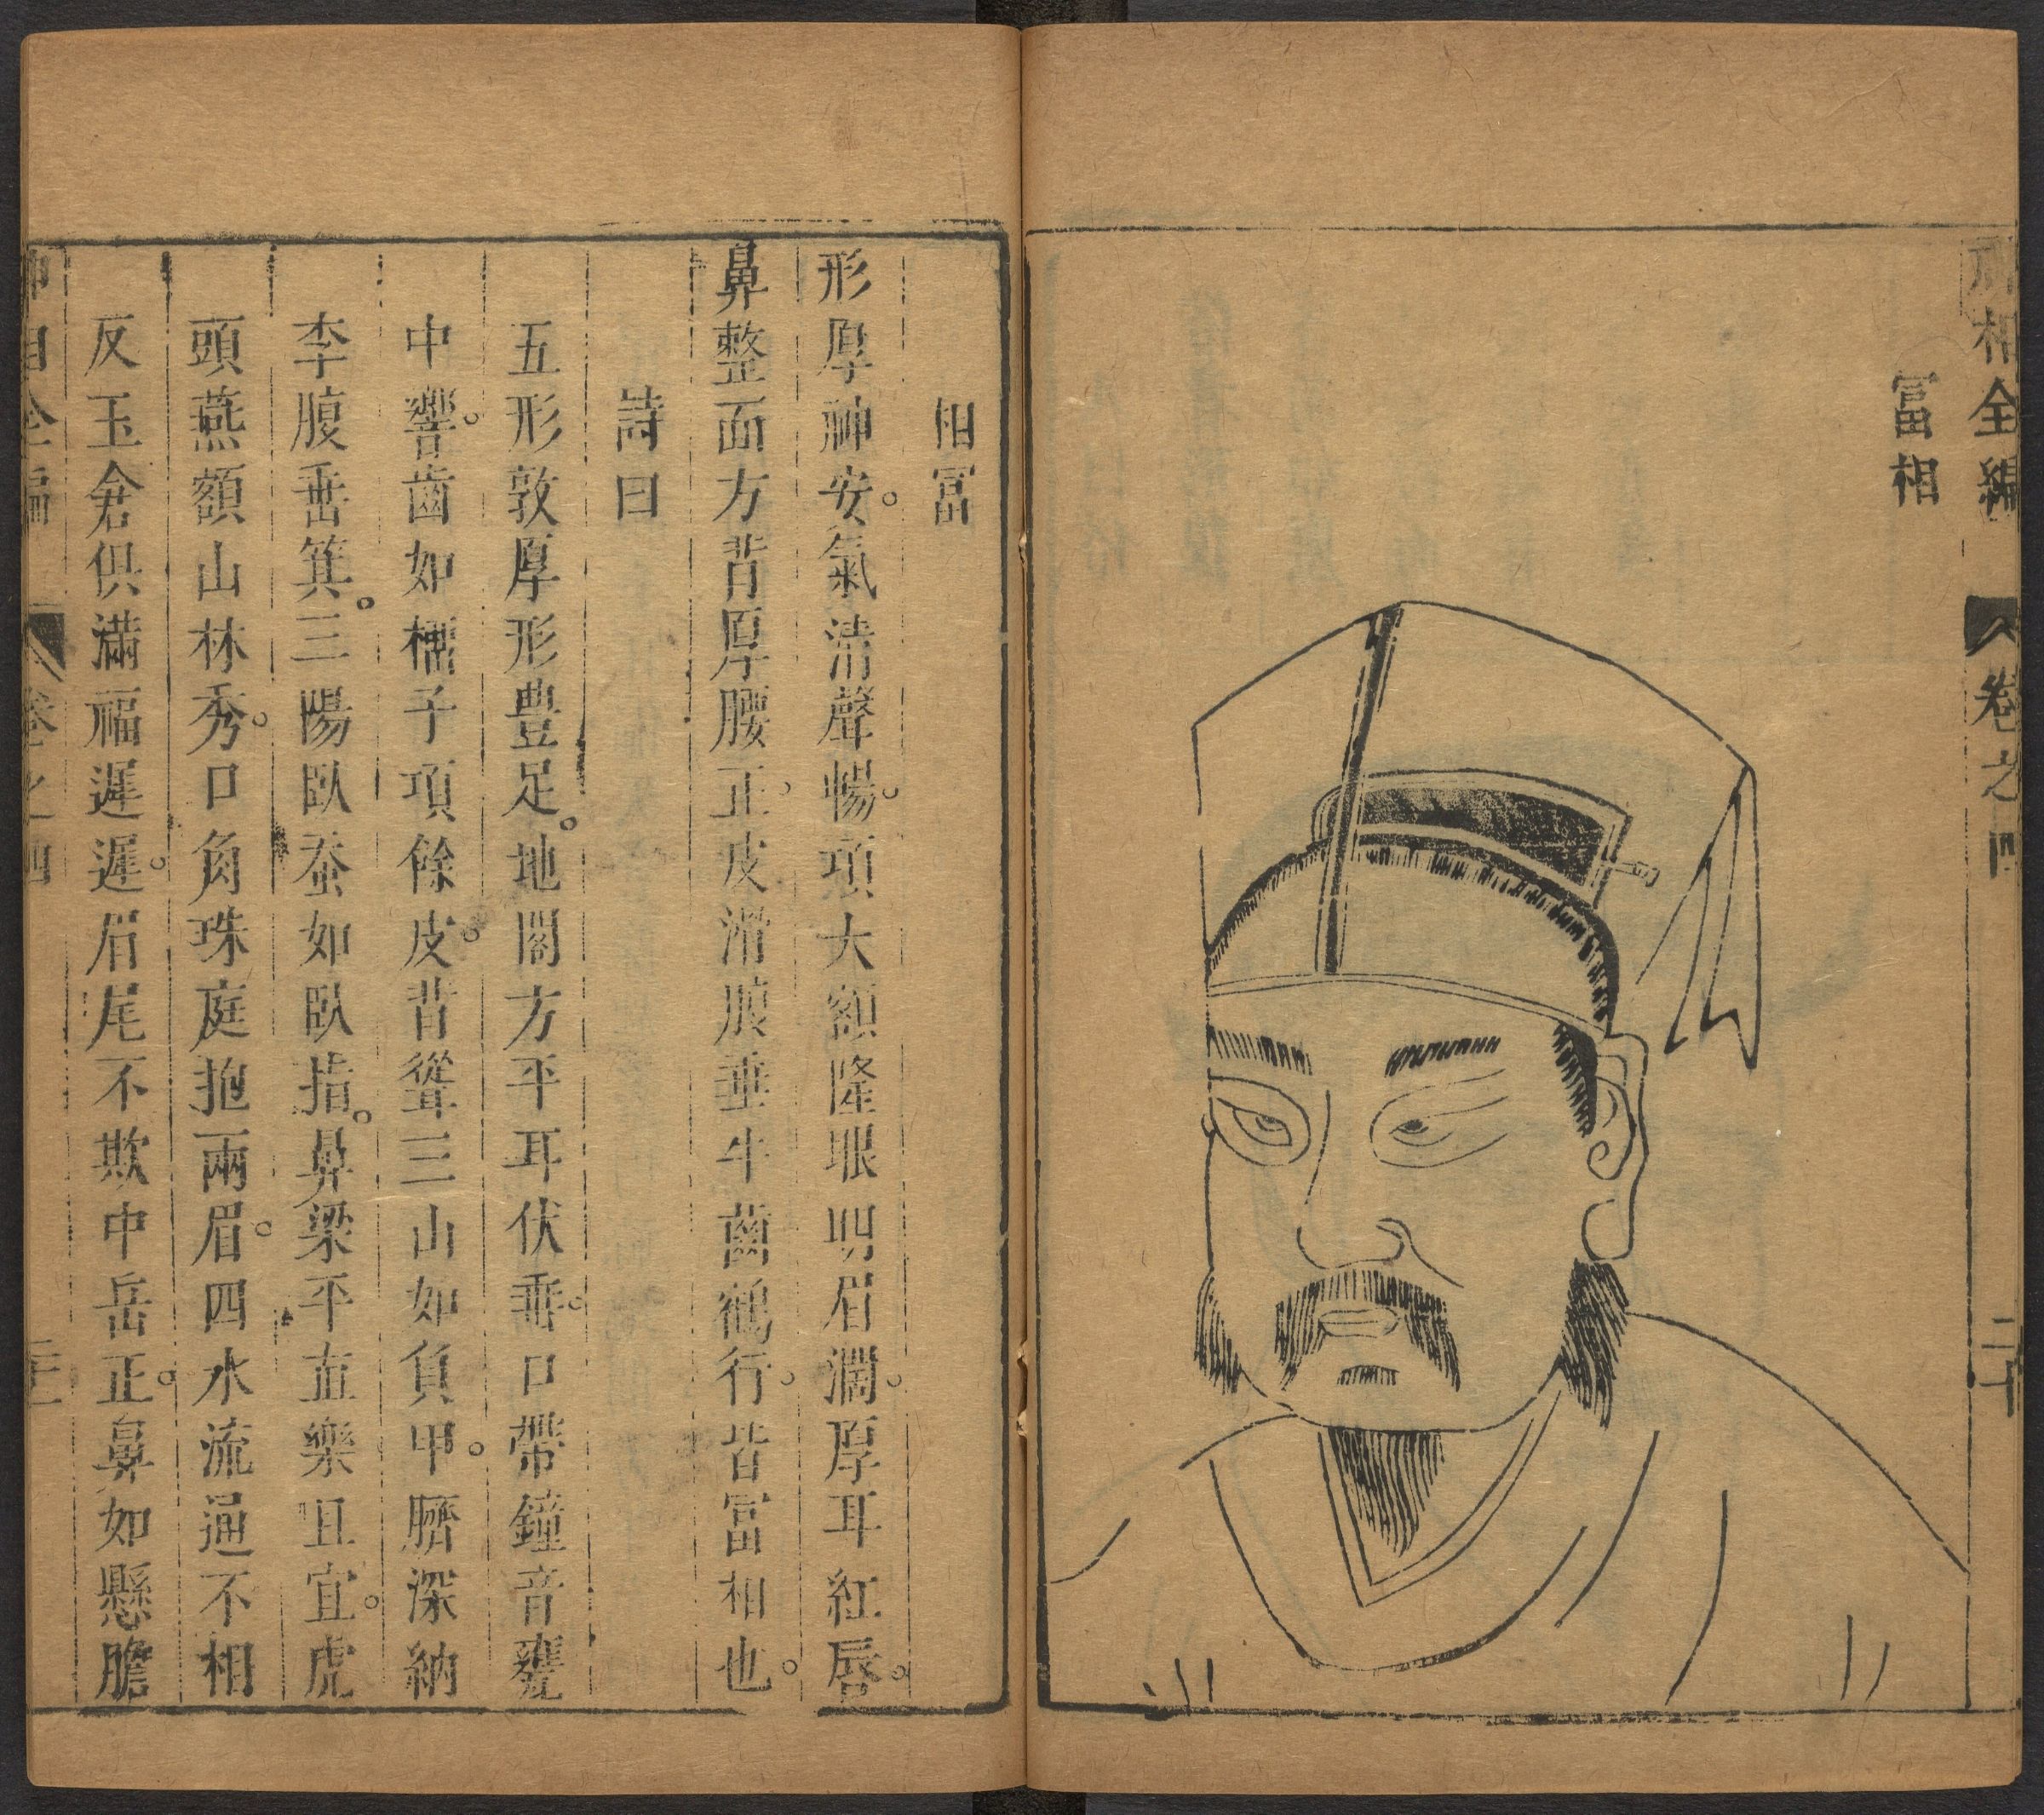 神相全編 卷之四 二十
冨相
相冨
形厚神安。氣清聲暢。項大額隆眼明眉濶。厚耳紅唇。
鼻整面方背厚腰正。皮滑腹垂牛齒鶴行。皆富相也。
詩曰
五形敦厚形豊足。地閣方平耳伏垂。口帶鐘音甕
中響。齒如榴子項餘皮。背聳三山如負甲。臍深納
李腹垂箕。三陽臥蚕如臥指。鼻梁平直樂且宜。虎
頭燕額山林秀。口角珠庭抱兩眉。四水流通不相
反玉倉俱滿福遲遲。眉尾不欺中岳正。鼻如懸膽
相全編 卷之四